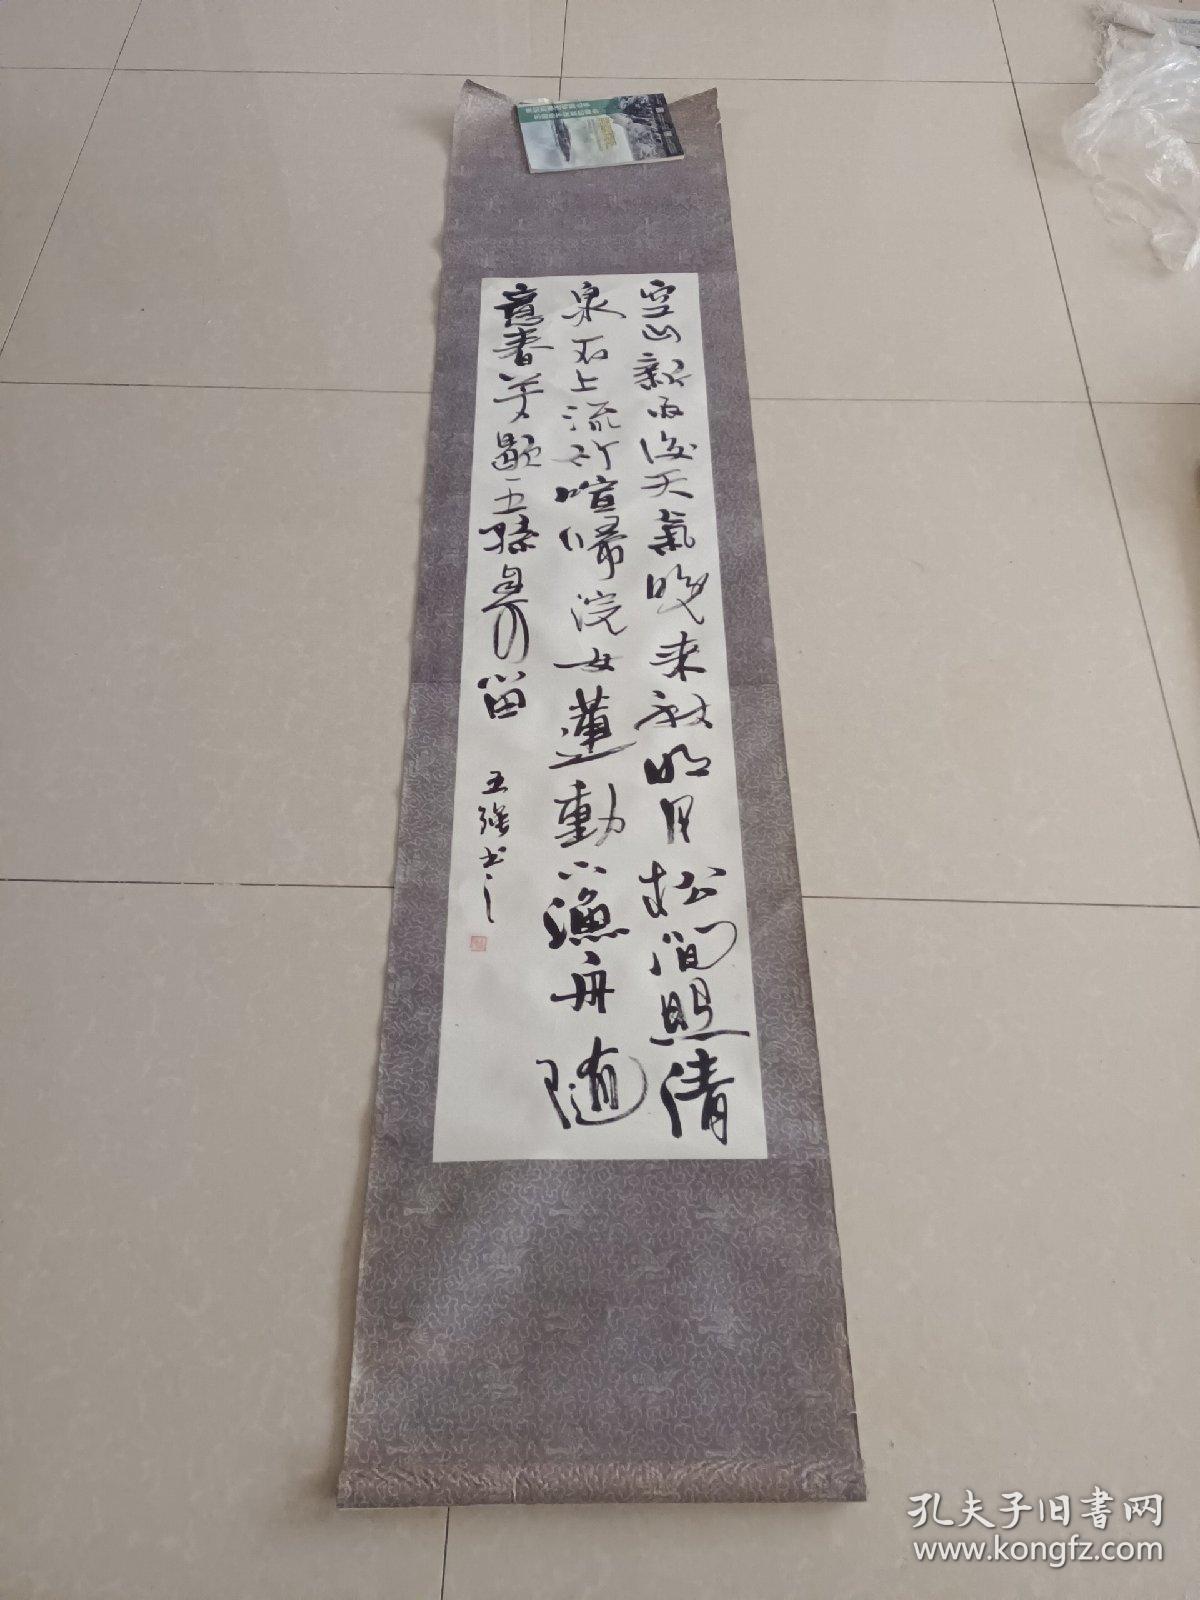 空山新雨後天氣晚来秋明月松间照清
泉石上流竹喧歸浣女蓮動下漁舟随
意春芳歇王孫自可留
五強书之
孔夫子旧书网
www.kongfz.com